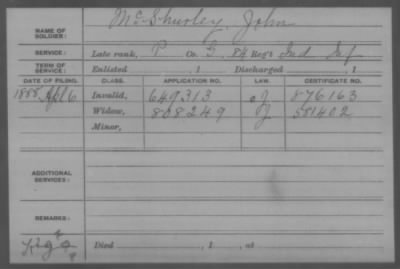 NAME OF SOLDIER: McShurley, John
SERVICE: Late rank, P Co. 84 Reg't Ind Inf
TERM OF SERVICE: Enlisted , 1 Discharged , 1
DATE OF FILING. CLASS. APPLICATION NO. LAW. CERTIFICATE NO.
1888 Apl 6 Invalid, 649313 J 876163
Widow, 808249 J 581402
Minor,
ADDITIONAL SERVICES:
REMARKS:
Died , 1 , at